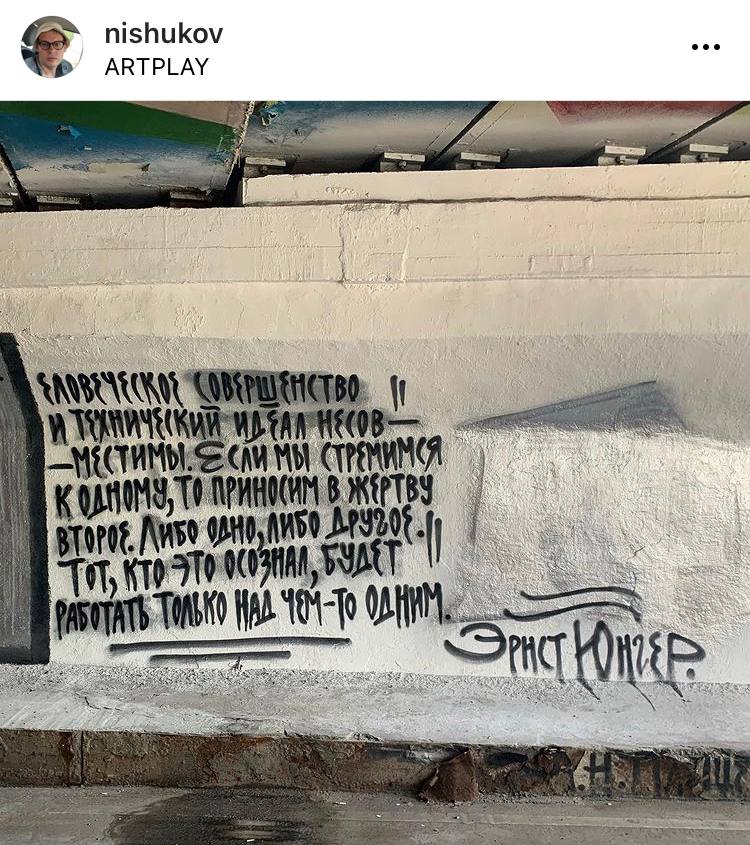 nishukov
ARTPLAY
ЕЛОВЕЧЕСКОЕ СОВЕРШЕНСТВО "
И ТЕХНИЧЕСКИЙ ИДЕАЛ НЕСОВ—
—МЕСТИМЫ. ЕСЛИ МЫ СТРЕМИМСЯ
К ОДНОМУ, ТО ПРИНОСИМ В ЖЕРТВУ
ВТОРОЕ. ЛИБО ОДНО, ЛИБО ДРУГОЕ. "
ТОТ, КТО ЭТО ОСОЗНАЛ, БУДЕТ
РАБОТАТЬ ТОЛЬКО НАД ЧЕМ-ТО ОДНИМ.
ЭРНСТ ЮНГЕР.
А.Н.